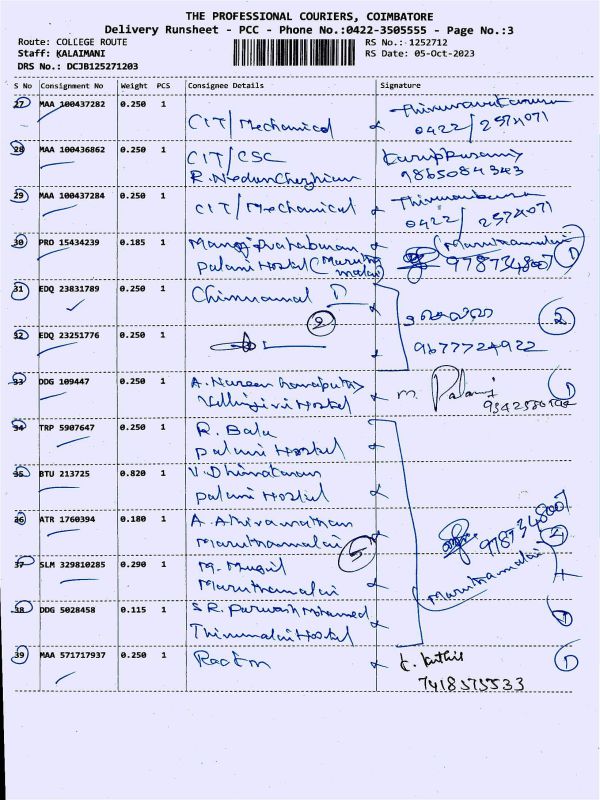 THE PROFESSIONAL COURIERS, COIMBATORE
Delivery Runsheet - PCC - Phone No.:0422-3505555 - Page No.:3
Route: COLLEGE ROUTE
RS No.: 1252712
Staff: KALAIMANI
RS Date: 05-Oct-2023
DRS No.: DCJB125271203
S No Consignment No Weight PCS Consignee Details Signature
27 MAA 100437282 0.250 1
CIT/Mechanical
0422/2574071
28 MAA 100436862 0.250 1 CIT/CSC
R. Nedunchezhian 9865084343
29 MAA 100437284 0.250 1
CIT/Mechanical
0422/2574071
30 PRO 15434239 0.185 1 Manoj Prabaharan (Maruthamalai) 1
Palani Hostel (Marutha malai) 9787348007
31 EDQ 23831789 0.250 1
2 2
32 EDQ 23251776 0.250 1
9677724922
33 DDG 109447 0.250 1 A. Naveen M. Palani 1
Hostel
34 TRP 5907647 0.250 1 R. Bala
Palani Hostel
35 BTU 213725 0.820 1 V. Dhinakaran
Palani Hostel
36 ATR 1760394 0.180 1 A. 9787348007
Maruthamalai
5
37 SLM 329810285 0.290 1 M. Mugil Maruthamalai
Maruthamalai
38 DDG 5028458 0.115 1 S.R. Mohamed
Thirumalai Hostel
39 MAA 571717937 0.250 1 K. 1
7418575533